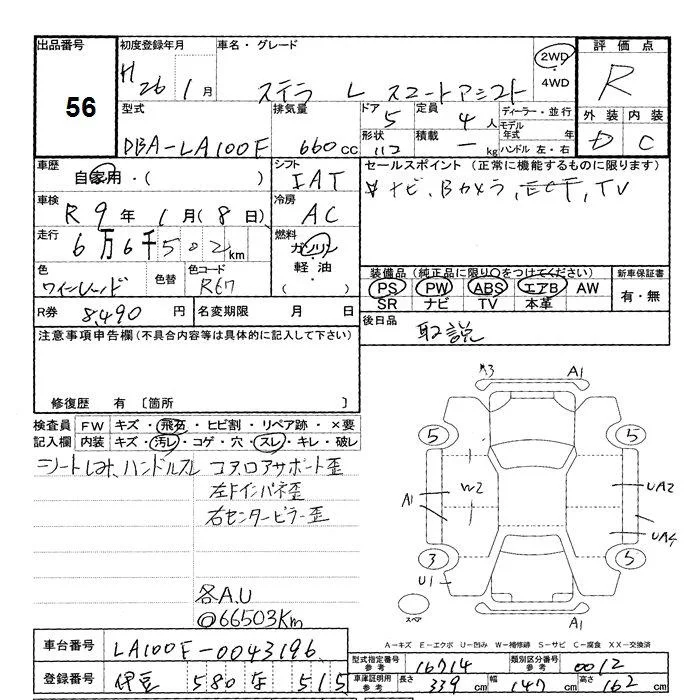 出品番号 初度登録年月 車名・グレード 評価点
56 H26 1月 ステラ L スマートアシスト 2WD・4WD R
型式 排気量 ドア 定員 ディーラー・並行 外装 内装
DBA-LA100F 660cc 5 4人 モデル年式 年 D C
形状 積載 ハンドル 左・右
ー kg
車歴 シフト セールスポイント(正常に機能するものに限ります)
自家用・( ) IAT ナビ、Bカメラ、ETC、TV
車検 冷房
R9年1月(8日) AC
走行 燃料
6万6千502km ガソリン
軽油
( )
色 色替 色コード 装備品(純正品に限り○をつけてください) 新車保証書
ワインレッド R67 PS PW ABS エアB AW 有・無
SR ナビ TV 本革
R券 8,490円 名変期限 月 日 後日品 取説
注意事項申告欄(不具合内容等は具体的に記入して下さい)
修復歴 有 〔箇所 〕
検査員 FW キズ・飛石・ヒビ割・リペア跡・×要
記入欄 内装 キズ・汚レ・コゲ・穴・スレ・キレ・破レ
シートしみ、ハンドルスレ コアロアサポート歪
左Fインパネ歪
右センターピラー歪
各A.U
@66503Km
A3 A1
5 5
A1 W2 UA2
UA4
3 5
U1
スペア A1
A-キズ E-エクボ U-凹み W-補修跡 S-サビ C-腐食 XX-交換済
車台番号 LA100F-0043196 型式指定番号 参考 16714 類別区分番号 参考 0012
登録番号 伊豆 580 な 515 車庫証明用 参考 長さ 339cm 幅 147cm 高さ 162cm